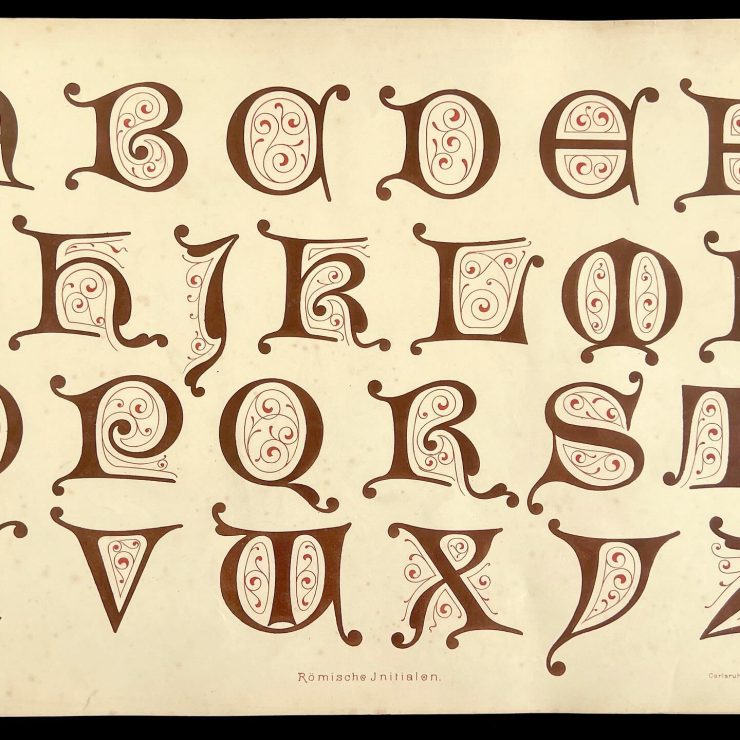 A B C D E F
H J K L M
O P Q R S T
V W X Y Z
Römische Jnitialen.
Carlsruh